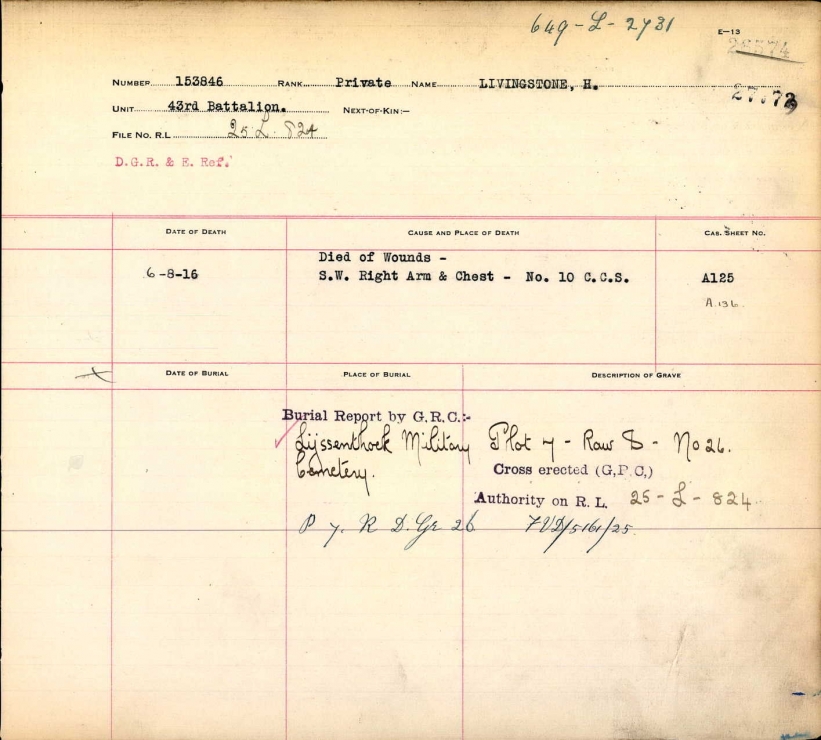 649-L-2731
E-13
26574
NUMBER 153846 RANK Private NAME LIVINGSTONE, H.
UNIT 43rd Battalion. NEXT-OF-KIN:-
FILE NO. R.L 25.L.824
D.G.R. & E. Ref.
DATE OF DEATH CAUSE AND PLACE OF DEATH CAS. SHEET NO.
Died of Wounds -
6-8-16 S.W. Right Arm & Chest - No. 10 C.C.S. A125
A.136.
DATE OF BURIAL PLACE OF BURIAL DESCRIPTION OF GRAVE
Burial Report by G.R.C.:-
Lijssenthoek Military Plot 7 - Row D - No 26.
Cemetery. Cross erected (G.P.C.)
Authority on R. L. 25-L-824
P 7. R D. Gr 26